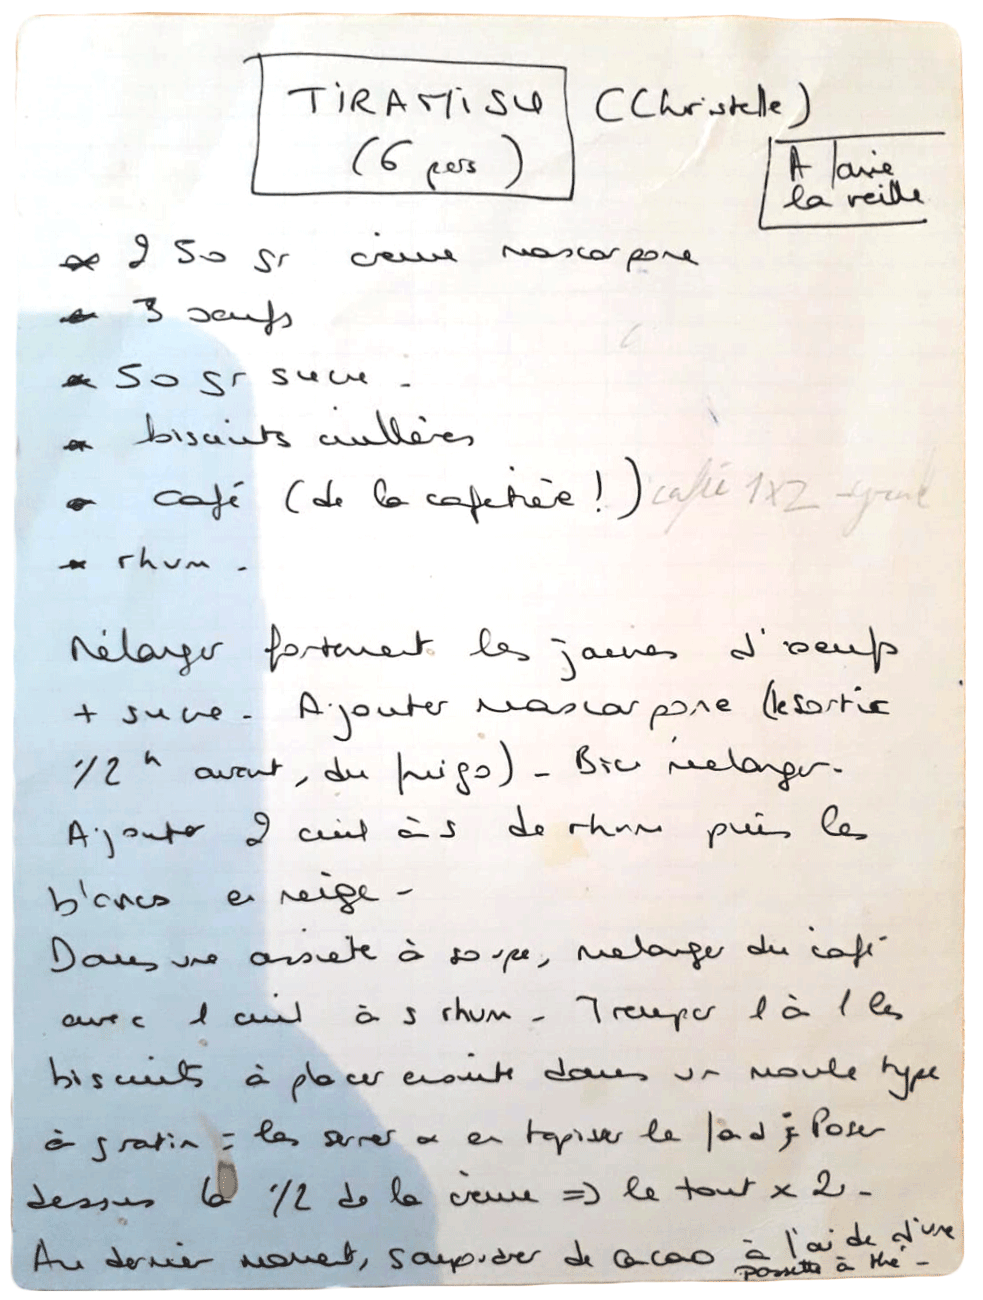 TIRAMISU (Christelle)
(6 pers)
A faire
la veille
* 250 gr crème mascarpone
* 3 oeufs
* 50 gr sucre -
* biscuits cuillères
* café (de la cafetière !) café 1x2 grand
* rhum -
Mélanger fortement les jaunes d'oeufs
+ sucre - Ajouter mascarpone (le sortir
1/2 h avant, du frigo) - Bien mélanger -
Ajouter 2 cuil à s de rhum puis les
blancs en neige -
Dans une assiette à soupe, mélanger du café
avec 1 cuil à s rhum - Tremper 1 à 1 les
biscuits à placer ensuite dans un moule type
à gratin = les serrer & en tapisser le fond ; Poser
dessus la 1/2 de la crème => le tout x 2 -
Au dernier moment, saupoudrer de cacao à l'aide d'une
passette à thé -